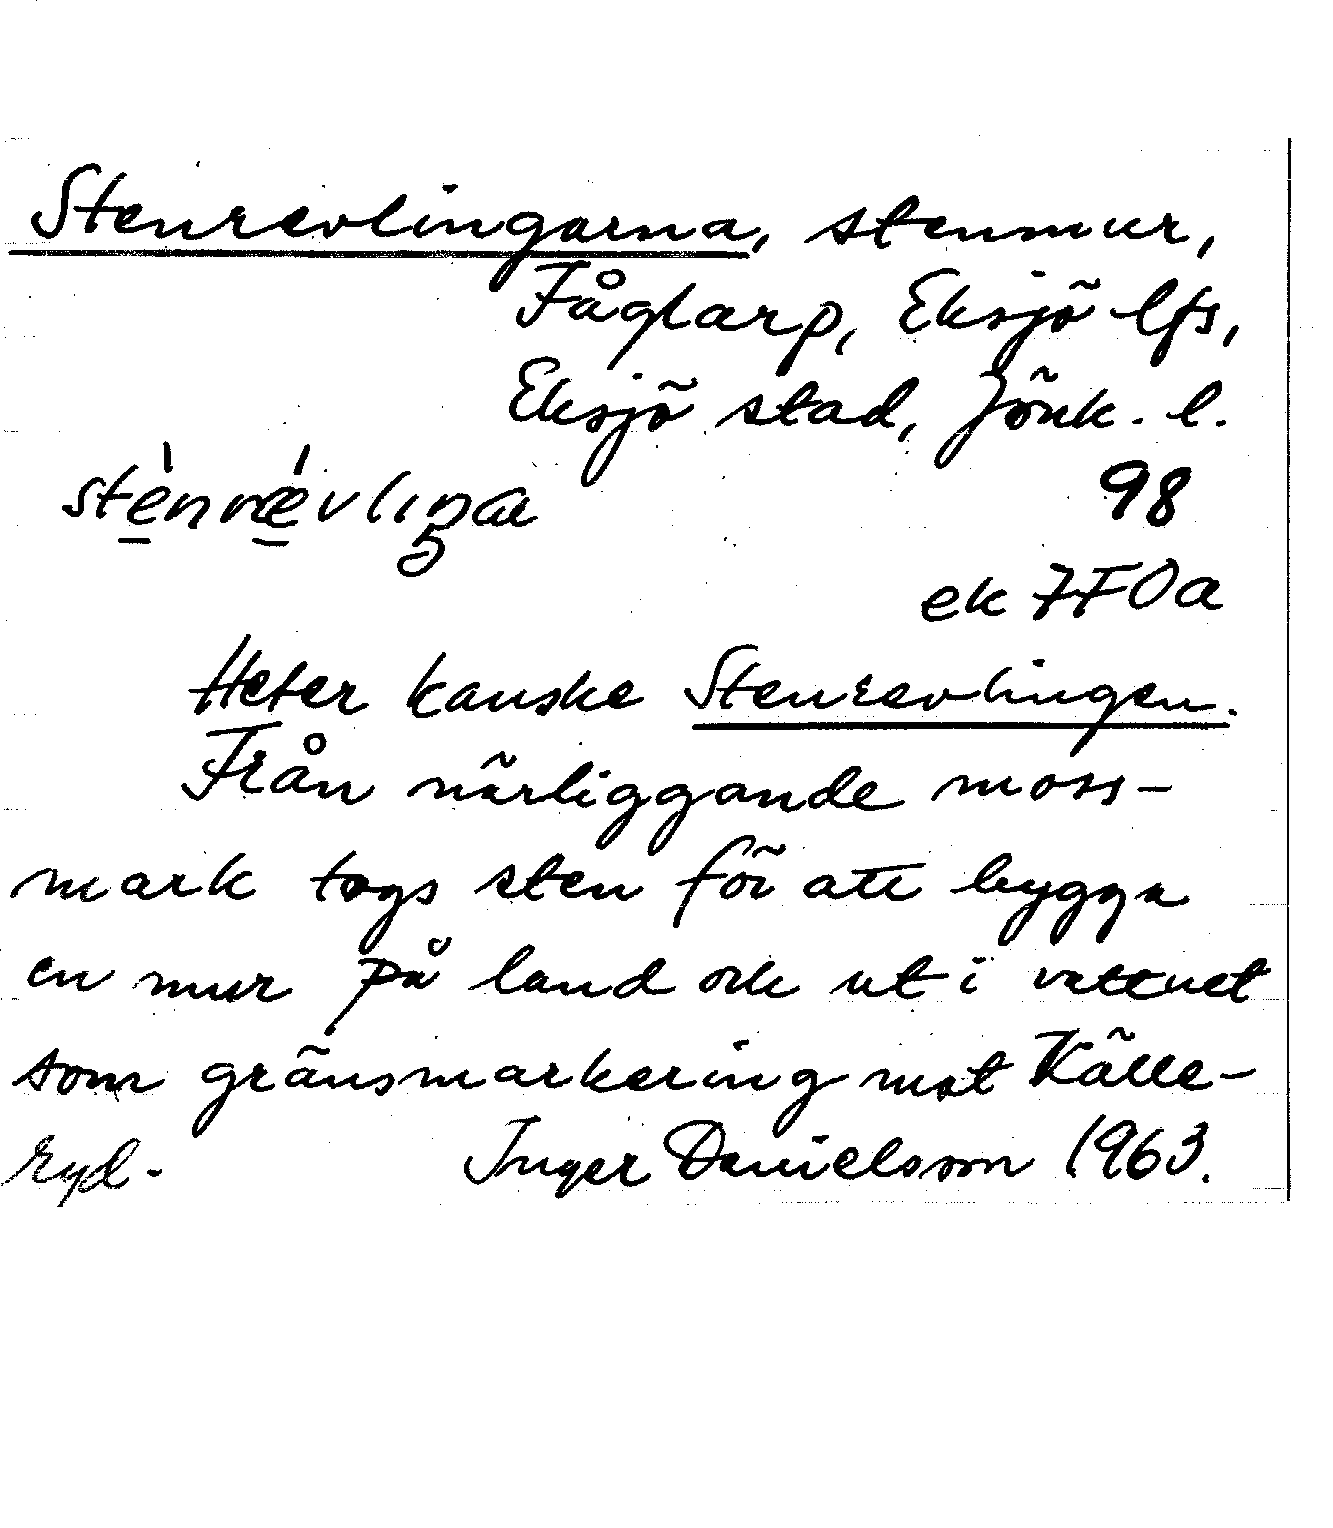 Stenrevlingarna, stenmur,
Fåglarp, Eksjö lfs,
Eksjö stad, Jönk. l.
98
ek 7F0a
Heter kanske Stenrevlingen.
Från närliggande moss-
mark togs sten för att bygga
en mur på land och ut i vattnet
som gränsmarkering mot Källe-
ryd. Inger Danielsson 1963.